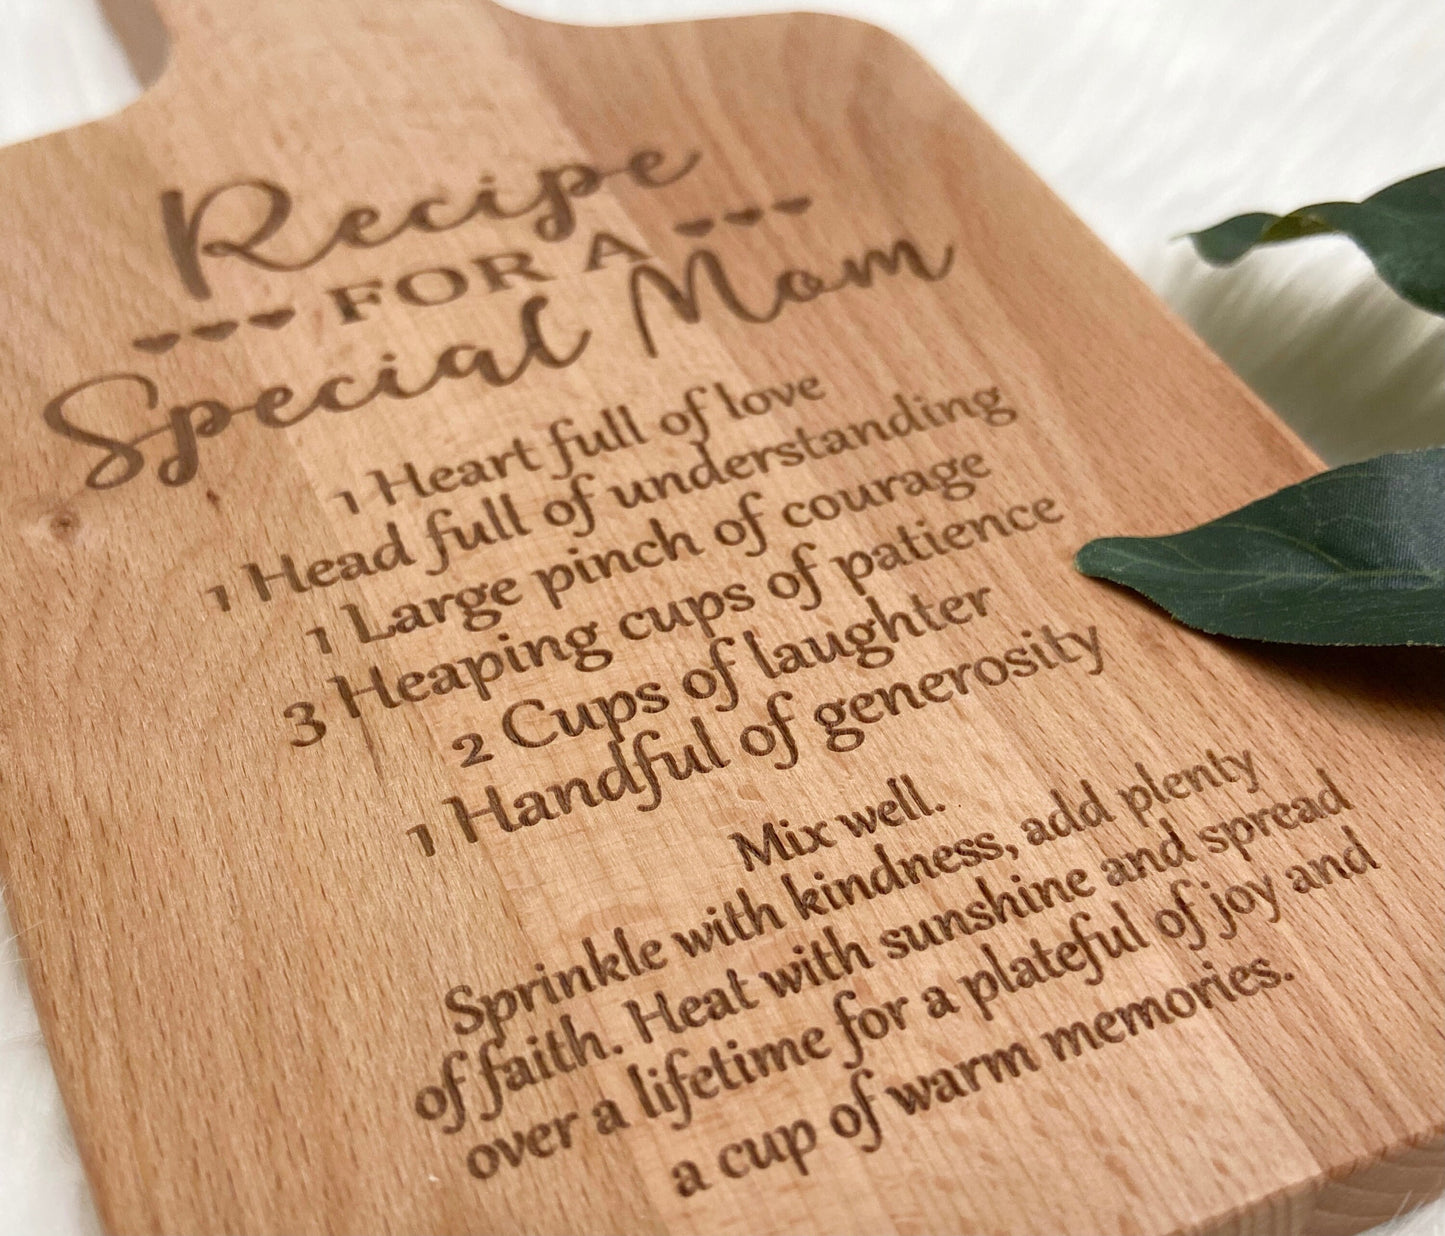 Recipe
FOR A
Special Mom
1 Heart full of love
1 Head full of understanding
1 Large pinch of courage
3 Heaping cups of patience
2 Cups of laughter
1 Handful of generosity
Mix well.
Sprinkle with kindness, add plenty
of faith. Heat with sunshine and spread
over a lifetime for a plateful of joy and
a cup of warm memories.